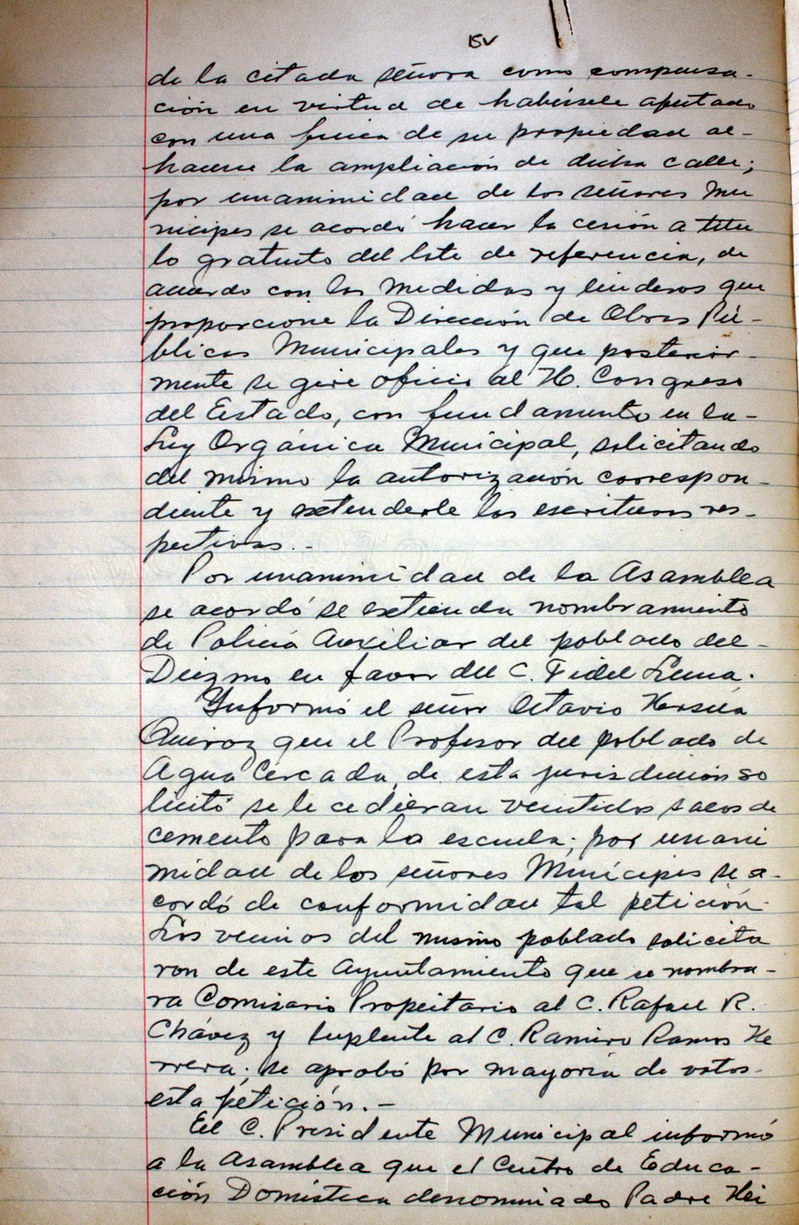 15v
de la citada señora como compensa-
ción en virtud de habérsele afectado
con una finca de su propiedad al-
hacerse la ampliación de dicha calle;
por unanimidad de los señores Mu
nícipes se acordó hacer la cesión a títu
lo gratuito del lote de referencia, de
acuerdo con las medidas y linderos que
proporcione la Dirección de Obras Pú-
blicas Municipales y que posterior-
mente se gire oficio al H. Congreso
del Estado, con fundamento en la-
Ley Orgánica Municipal, solicitando
del mismo la autorización correspon-
diente y extenderle las escrituras res-
pectivas.-
Por unanimidad de la Asamblea
se acordó se extienda nombramiento
de Policía Auxiliar del poblado del-
Diezmo en favor del C. Fidel Luna.
Informó el señor Octavio
Quiroz que el Profesor del poblado de
Agua Cercada, de esta jurisdicción so
licitó se le cedieran veintidos sacos de
cemento para la escuela; por unani
midad de los señores Munícipes se a-
cordó de conformidad tal petición.
Los vecinos del mismo poblado solicita
ron de este Ayuntamiento que se nombra-
ra Comisario Propeitario al C. Rafael R.
Chávez y Suplente al C. Ramiro Ramos He
rrera; se aprobó por mayoría de votos-
esta petición.-
El C. Presidente Municipal informó
a la Asamblea que el Centro de Educa-
ción Doméstica denominado Padre Hi